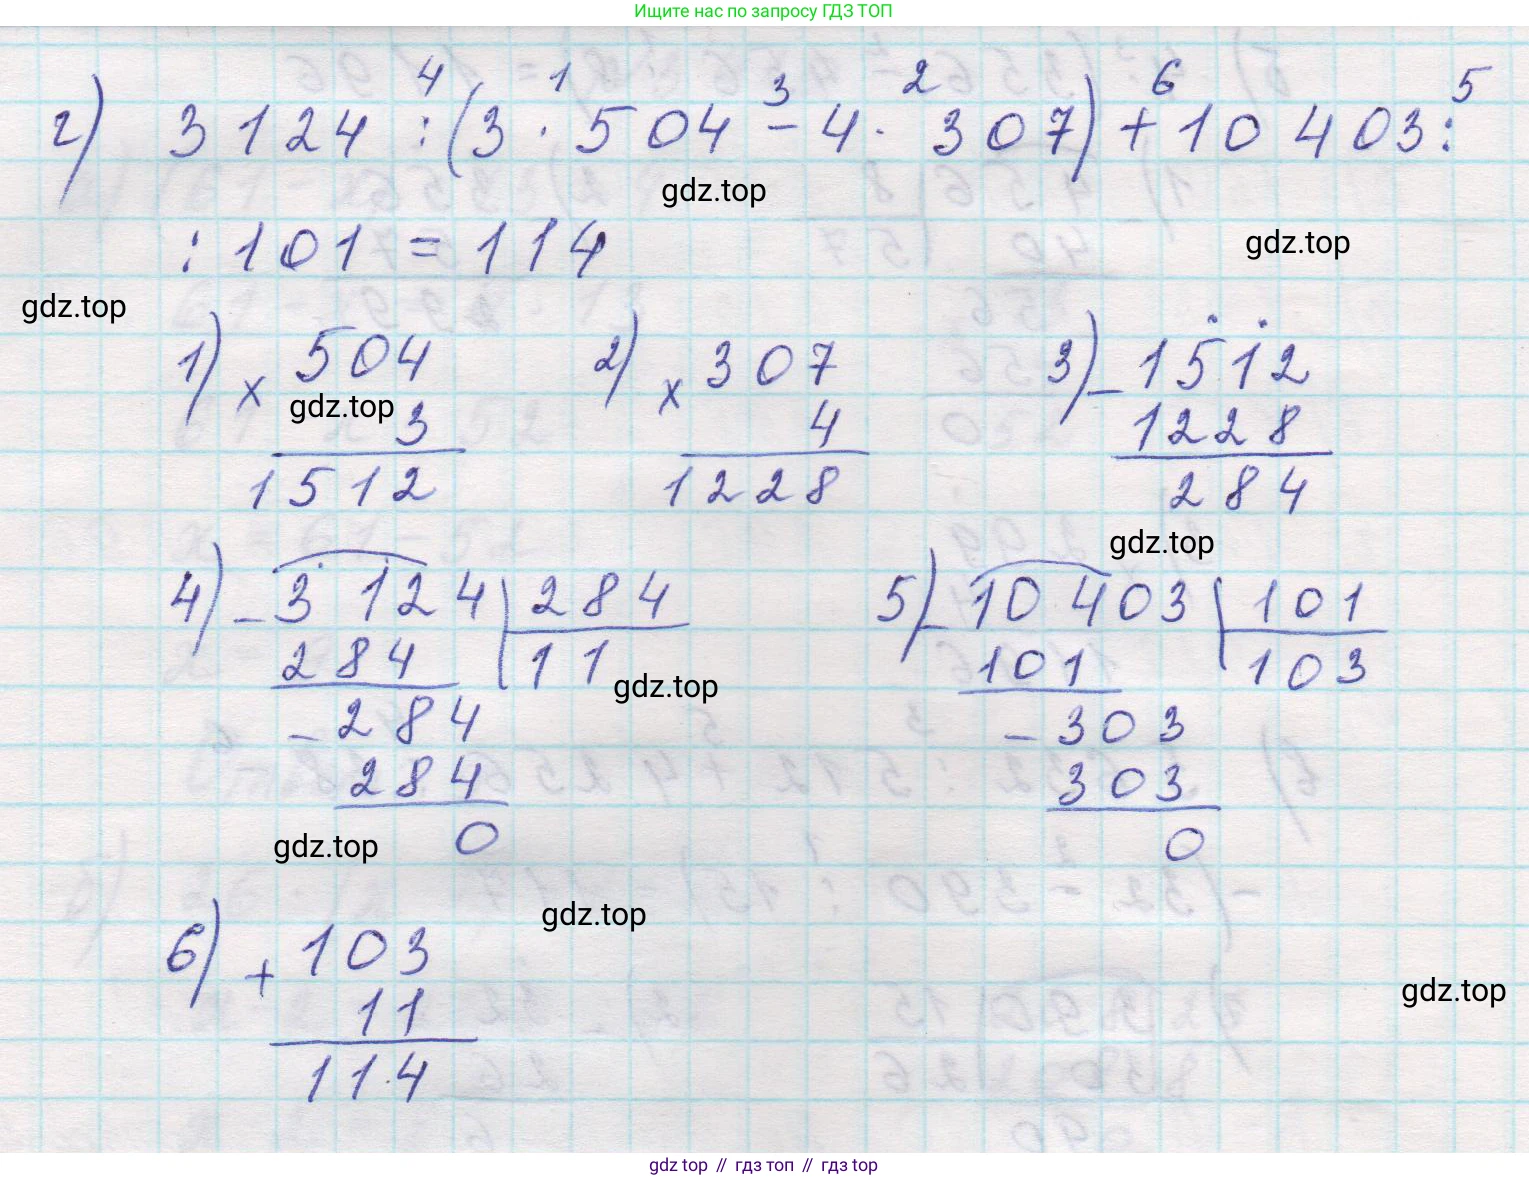 Ищите нас по запросу ГДЗ ТОП
4 1 3 2 6 5
г) 3124 : (3 · 504 − 4 · 307) + 10403 :
gdz.top
: 101 = 114
gdz.top
gdz.top
1) × 504
gdz.top
3
1512
2) × 307
4
1228
3) − 1512
1228
284
gdz.top
4) − 3124 | 284
284 | 11
gdz.top
− 284
284
0
gdz.top
5) − 10403 | 101
101 | 103
− 303
303
0
gdz.top
6) + 103
11
114
gdz.top
gdz top // гдз топ // гдз top